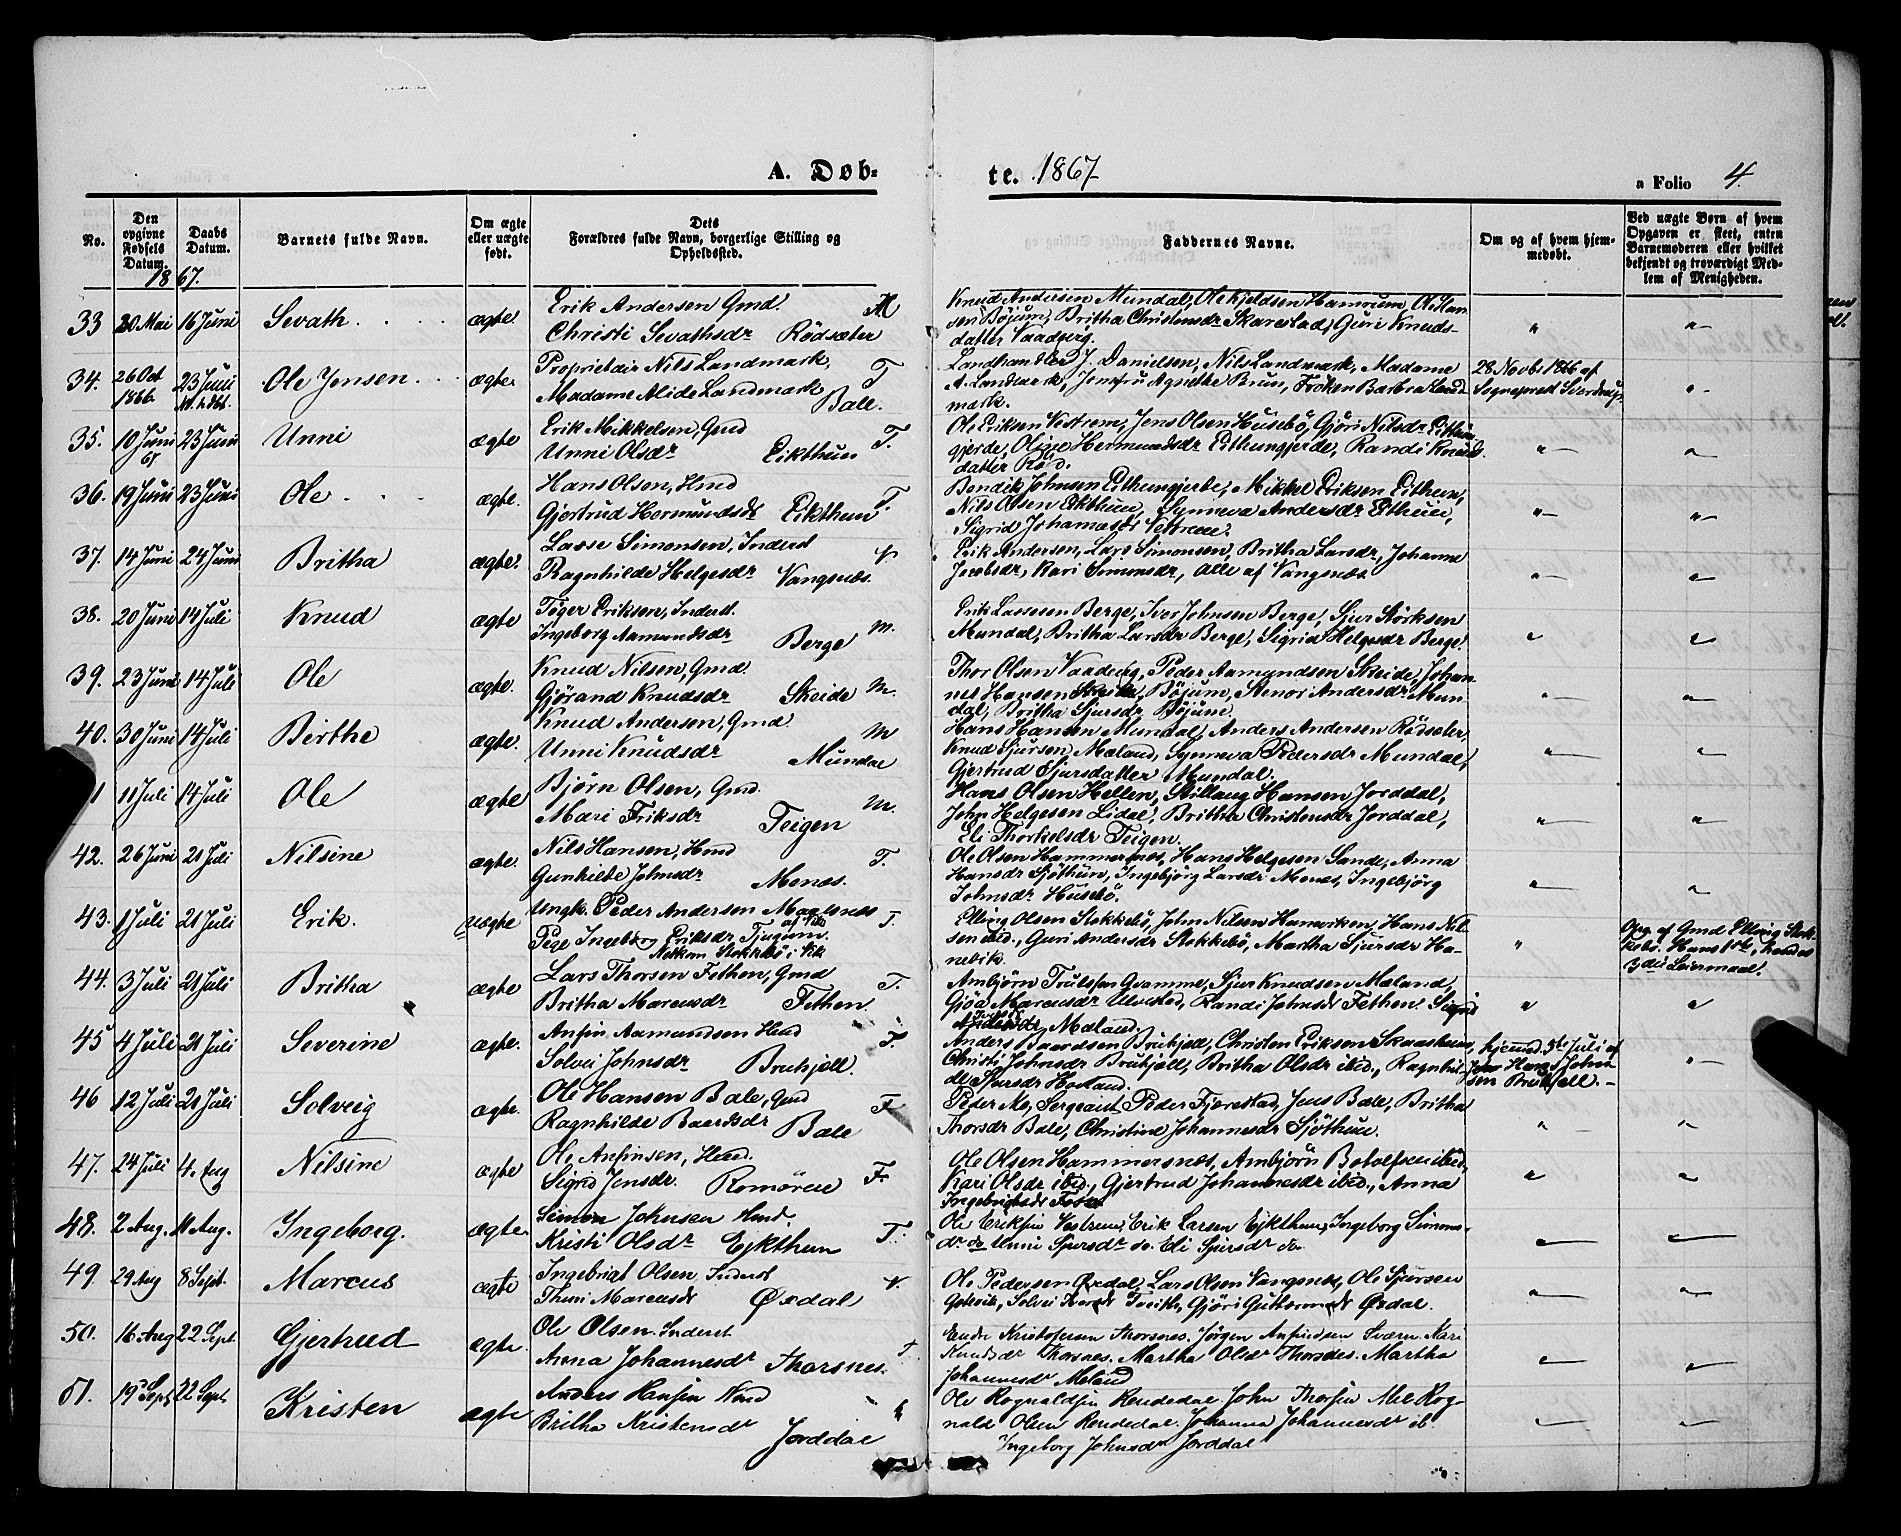 A. Døb-
te. 1867
a Folio 4.
No.
Den opgivne Fødsels Datum.
Daabs Datum.
Barnets fulde Navn.
Om ægte eller uægte født.
Dets Forældres fulde Navn, borgerlige Stilling og Opholdssted.
Faddernes Navne.
Om og af hvem hjemmedøbt.
Ved uægte Børn af hvem Opgaven er skeet, enten Barnemoderen eller hvilket bekjendt og troværdigt Medlem af Menigheden.
1867.
33 20 Mai 16 Juni Sevath ægte Erik Andersen Gmd. M
Christi Sevathsdr Rödsæter
Knud Andersen Mundal, Ole Kjeldsen Hamrum, Ole Han-
sen Böjum, Britha Christensdr Skarestad, Guri Knuds-
datter Vaadberg.
34. 26 Oct 1866 23 Juni Ole Jensen ægte Proprietair Nils Landmark, T
Madame Alide Landmark Bale.
Landhandler J. Danielsen, Nils Landmark, Madame
A. Landmark, Jomfru Agnethe Brun, Fröken Barbra Land-
mark.
28 Novbr 1866 af
Sognepræst Sverdrup
35. 10 Juni 67 23 Juni Unni ægte Erik Mikkelsen, Gmd T.
Unni Olsdr Eikthun
Ole Eriksen Vestrem, Jens Olsen Husebö, Gjöri Nilsdr Eithun-
gjerde, Oline Hermundsdr Eithungjerde, Randi Knuds-
datter Röd.
36. 19 Juni 23 Juni Ole ægte. Hans Olsen, Hmd T.
Gjertrud Hermundsdr Eikthun
Bendik Johnsen Eithungjerde, Mikkel Eriksen Eithun,
Nils Olsen Eikthun, Synneva Andersdr Eithun,
Sigrid Johannesdr Vestrem.
37. 14 Juni 24 Juni Britha ægte. Lasse Simonsen, Inderst V
Ragnhilde Helgesdr Vangsnæs.
Erik Andersen, Lars Simonsen, Britha Larsdr, Johanna
Jacobsdr, Kari Simonsdr, Alle af Vangsnæs
38. 20 Juni 14 Juli Knud ægte Töger Eriksen, Inderst.
Ingeborg Aamundsdr Berge M.
Erik Lassesen Berge, Iver Johnsen Berge, Sjur Störksen
Mundal, Britha Larsdr Berge, Sigrid Helgesdr Berge.
39. 23 Juni 14 Juli Ole ægte. Knud Nilsen, Gmd.
Gjörand Knudsdr Skeide M.
Thor Olsen Vaadberg, Peder Aamundsen Skeide, Johan-
nes Hansen Böjum, Stenor Andersdr Mun-
dal, Britha Sjursdr Böjum.
40. 30 Juni 14 Juli Birthe ægte. Knud Andersen, Gmd. M
Unni Knudsdr Mundal
Hans Hansen Mundal, Anders Andersen Rödsæter
Knud Sjursen Mæland, Synneva Pedersdr Mundal,
Gjertrud Sjursdatter Mundal.
1 11 Juli 14 Juli Ole ægte Bjørn Olsen, Gmd. M.
Mari Eriksdr Teigen
Hans Olsen Hellen, Stillaug Hansen Jorddal,
John Helgesen Lidal, Britha Christensdr Jorddal,
Eli Thorkelsdr Teigen.
42. 26 Juni 21 Juli Nilsine ægte. Nils Hansen, Hmd T.
Gunhilde Johnsdr Menæs.
Ole Olsen Hammersnæs, Hans Helgesen Sande, Anna
Hansdr Sjöthun, Ingebjörg Larsdr Menæs, Ingebjörg
Johnsdr Husebö.
43. 1 Juli 21 Juli Erik. uægte Ungk. Peder Andersen T.
Pige Ingeborg Eriksdr Tjugum.
Stokkebö i Vik
Elling Olsen Stokkebö, John Nilsen Haneviken, Hans Nil-
sen ibid., Guri Andersdr Stokkebö, Martha Sjursdr Ha-
nevik.
Opg. af Gmd Elling Stok-
kebö. Hans 1ste, hendes
3die Leiermaal.
44. 3 Juli 21 Juli Britha ægte Lars Thorsen Fethen, Gmd T.
Britha Marcusdr Fethen
Ambjørn Trulssen Qvamme, Sjur Knudsen Mæland,
Gjöa Marcusdr Ulvestad, Randi Johnsdr Fethen. Sigrid
Andersdr Mæland.
45 4 Juli 21 Juli Severine ægte. Anfin Aamundsen Hmd F.
Solvei Johnsdr Bruhjell
Anders Baardsen Bruhjell, Christen Eriksen Skaasheim,
Christi Johnsdr Bruhjell, Britha Olsdr ibid., Ragnhil-
de Sjursdr Hotland.
hjemmed. 5te Juli af
Hans Johan-
sen Bruhjell.
46 12 Juli 21 Juli Solveig ægte. Ole Hansen Bale, Gmd F
Ragnhilde Baardsdr Bale
Peder Mo, Sergeant Peder Fjærestad, Jens Bale, Britha
Thorsdr Bale, Christine Johannesdr Sjöthun.
47. 24 Juli 4. Aug Nilsine ægte Ole Anfinsen, Hmd.
Sigrid Jensdr. Romören F.
Ole Olsen Hammersnæs, Ambjörn Botolfsen ibid.,
Kari Olsdr ibid., Gjertrud Johannesdr ibid., Anna
Ingebrigtsdr
48. 2 Aug. 11 Aug. Ingeborg. ægte Simon Johnsen Hmd.
Kristi Olsdr Ejkthun T.
Ole Eriksen Vestrem, Erik Larsen Ejkthun, Ingeborg Simons-
dr do Unni Sjursdr do. Eli Sjursdr do
49. 29 Aug 8 Sept. Marcus ægte Ingebrigt Olsen Inderst V.
Thuri Marcusdr Øxdal
Ole Pedersen Øxdal, Lars Olsen Vangsnæs, Ole Sjursen
Solvei Tveith, Gjöri Guttormsdr Øxdal.
50. 16 Aug 22 Sept Gjertrud ægte Ole Olsen Inderst T
Anna Johannesdr Thorsnes.
Endre Kristofersen Thorsnes. Jörgen Anfindsen Sværn. Kari
Knudsdr Thorsnes. Martha Olsdr Thorsnes. Martha
Johannesdr Meland
51. 19 Sept 22 Sept Kristen ægte Anders Hansen Hmd
Britha Kristensdr Jorddal
Ole Rognaldsen Rendedal John Thorsen Mel Rog-
nald Olsen Rendedal Johanna Johannesdr ib.
Ingeborg Johnsdr Jorddal